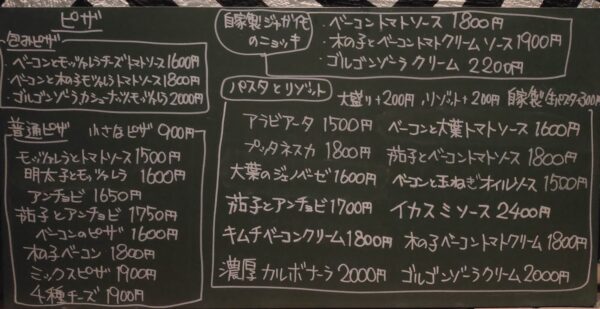 ピザ
包みピザ
ベーコンとモッツァレラチーズトマトソース 1600円
ベーコンと木の子モッツァレラトマトソース 1800円
ゴルゴンゾーラカシューナッツモッツァレラ 2000円
普通ピザ 小さなピザ 900円
モッツァレラとトマトソース 1500円
明太子とモッツァレラ 1600円
アンチョビ 1650円
茄子とアンチョビ 1750円
ベーコンのピザ 1600円
木の子ベーコン 1800円
ミックスピザ 1900円
4種チーズ 1900円
自家製ジャガイモのニョッキ
・ベーコントマトソース 1800円
・木の子とベーコントマトクリームソース 1900円
・ゴルゴンゾーラクリーム 2200円
パスタとリゾット 大盛り+200円,リゾット+200円 自家製生パスタ+300円
アラビアータ 1500円
プッタネスカ 1800円
大葉のジェノベーゼ 1600円
茄子とアンチョビ 1700円
キムチベーコンクリーム 1800円
濃厚カルボナーラ 2000円
ベーコンと大葉トマトソース 1600円
茄子とベーコントマトソース 1800円
ベーコンと玉ねぎオイルソース 1500円
イカスミソース 2400円
木の子ベーコントマトクリーム 1800円
ゴルゴンゾーラクリーム 2000円